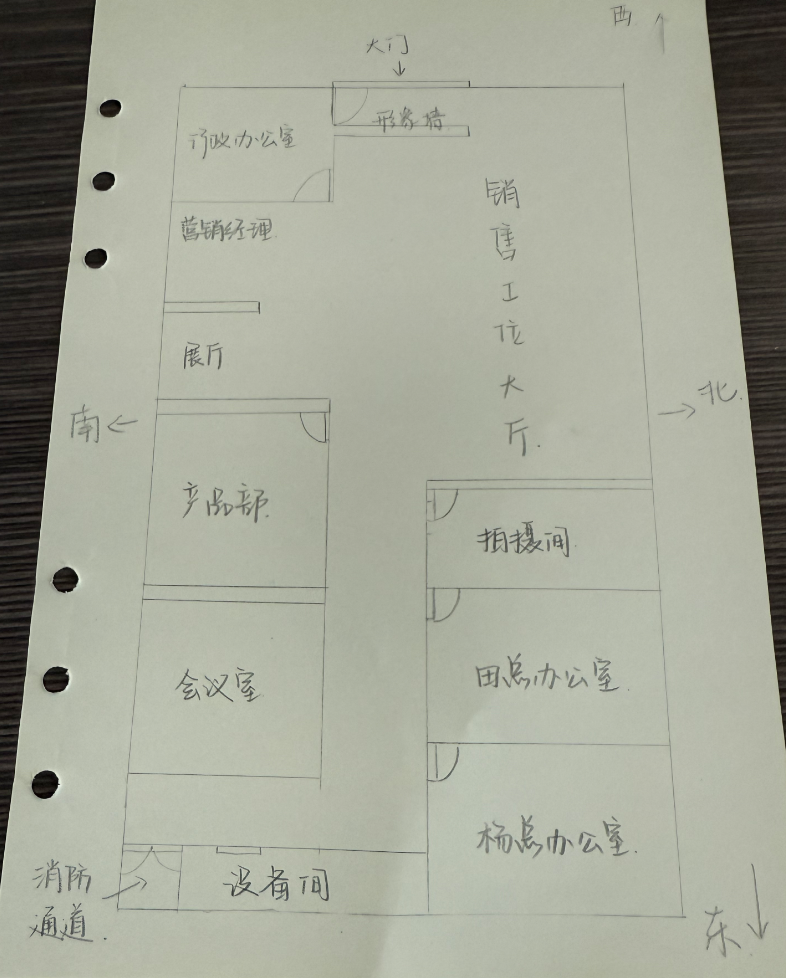 西
大门
形象墙
行政办公室
销售工位大厅.
营销经理
展厅
南
北.
产品部.
拍摄间.
会议室
田总办公室.
杨总办公室.
消防
通道.
设备间
东